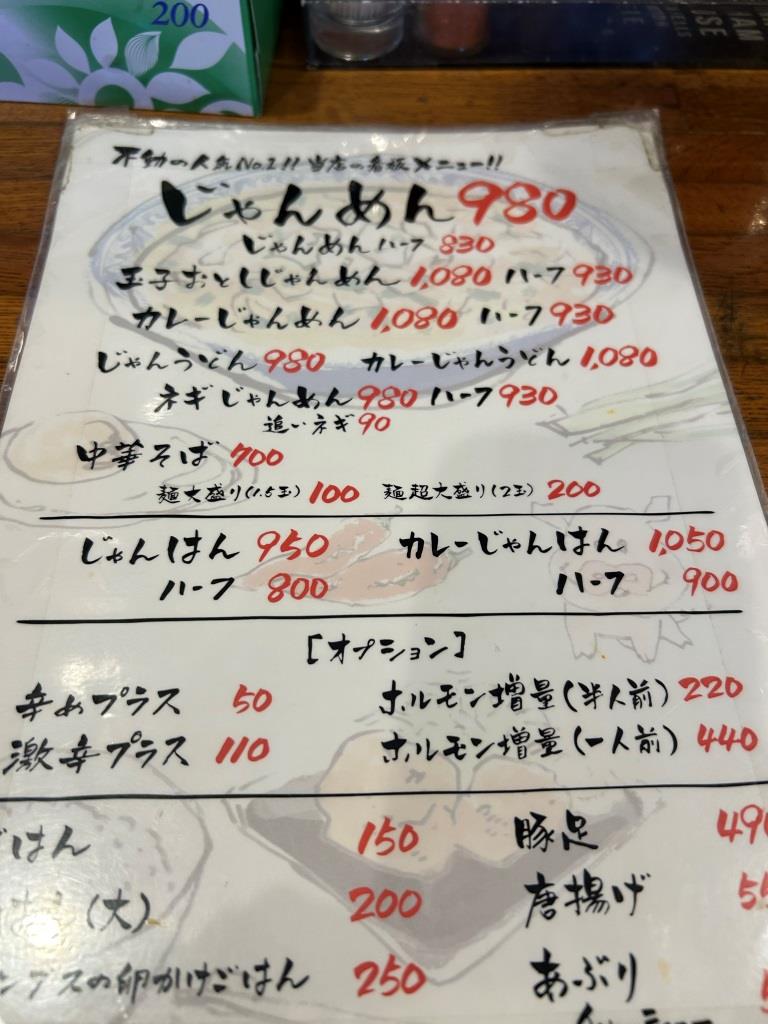 200
不動の人気No.1!! 当店の看板メニュー!!
じゃんめん 980
じゃんめんハーフ 830
玉子おとしじゃんめん 1,080 ハーフ 930
カレーじゃんめん 1,080 ハーフ 930
じゃんうどん 980 カレーじゃんうどん 1,080
ネギじゃんめん 980 ハーフ 930
追いネギ 90
中華そば 700
麺大盛り(1.5玉) 100 麺超大盛り(2玉) 200
じゃんはん 950 カレーじゃんはん 1,050
ハーフ 800 ハーフ 900
[オプション]
辛めプラス 50 ホルモン増量(半人前) 220
激辛プラス 110 ホルモン増量(一人前) 440
ごはん 150 豚足 490
(大) 200 唐揚げ
プスの卵かけごはん 250 あぶり